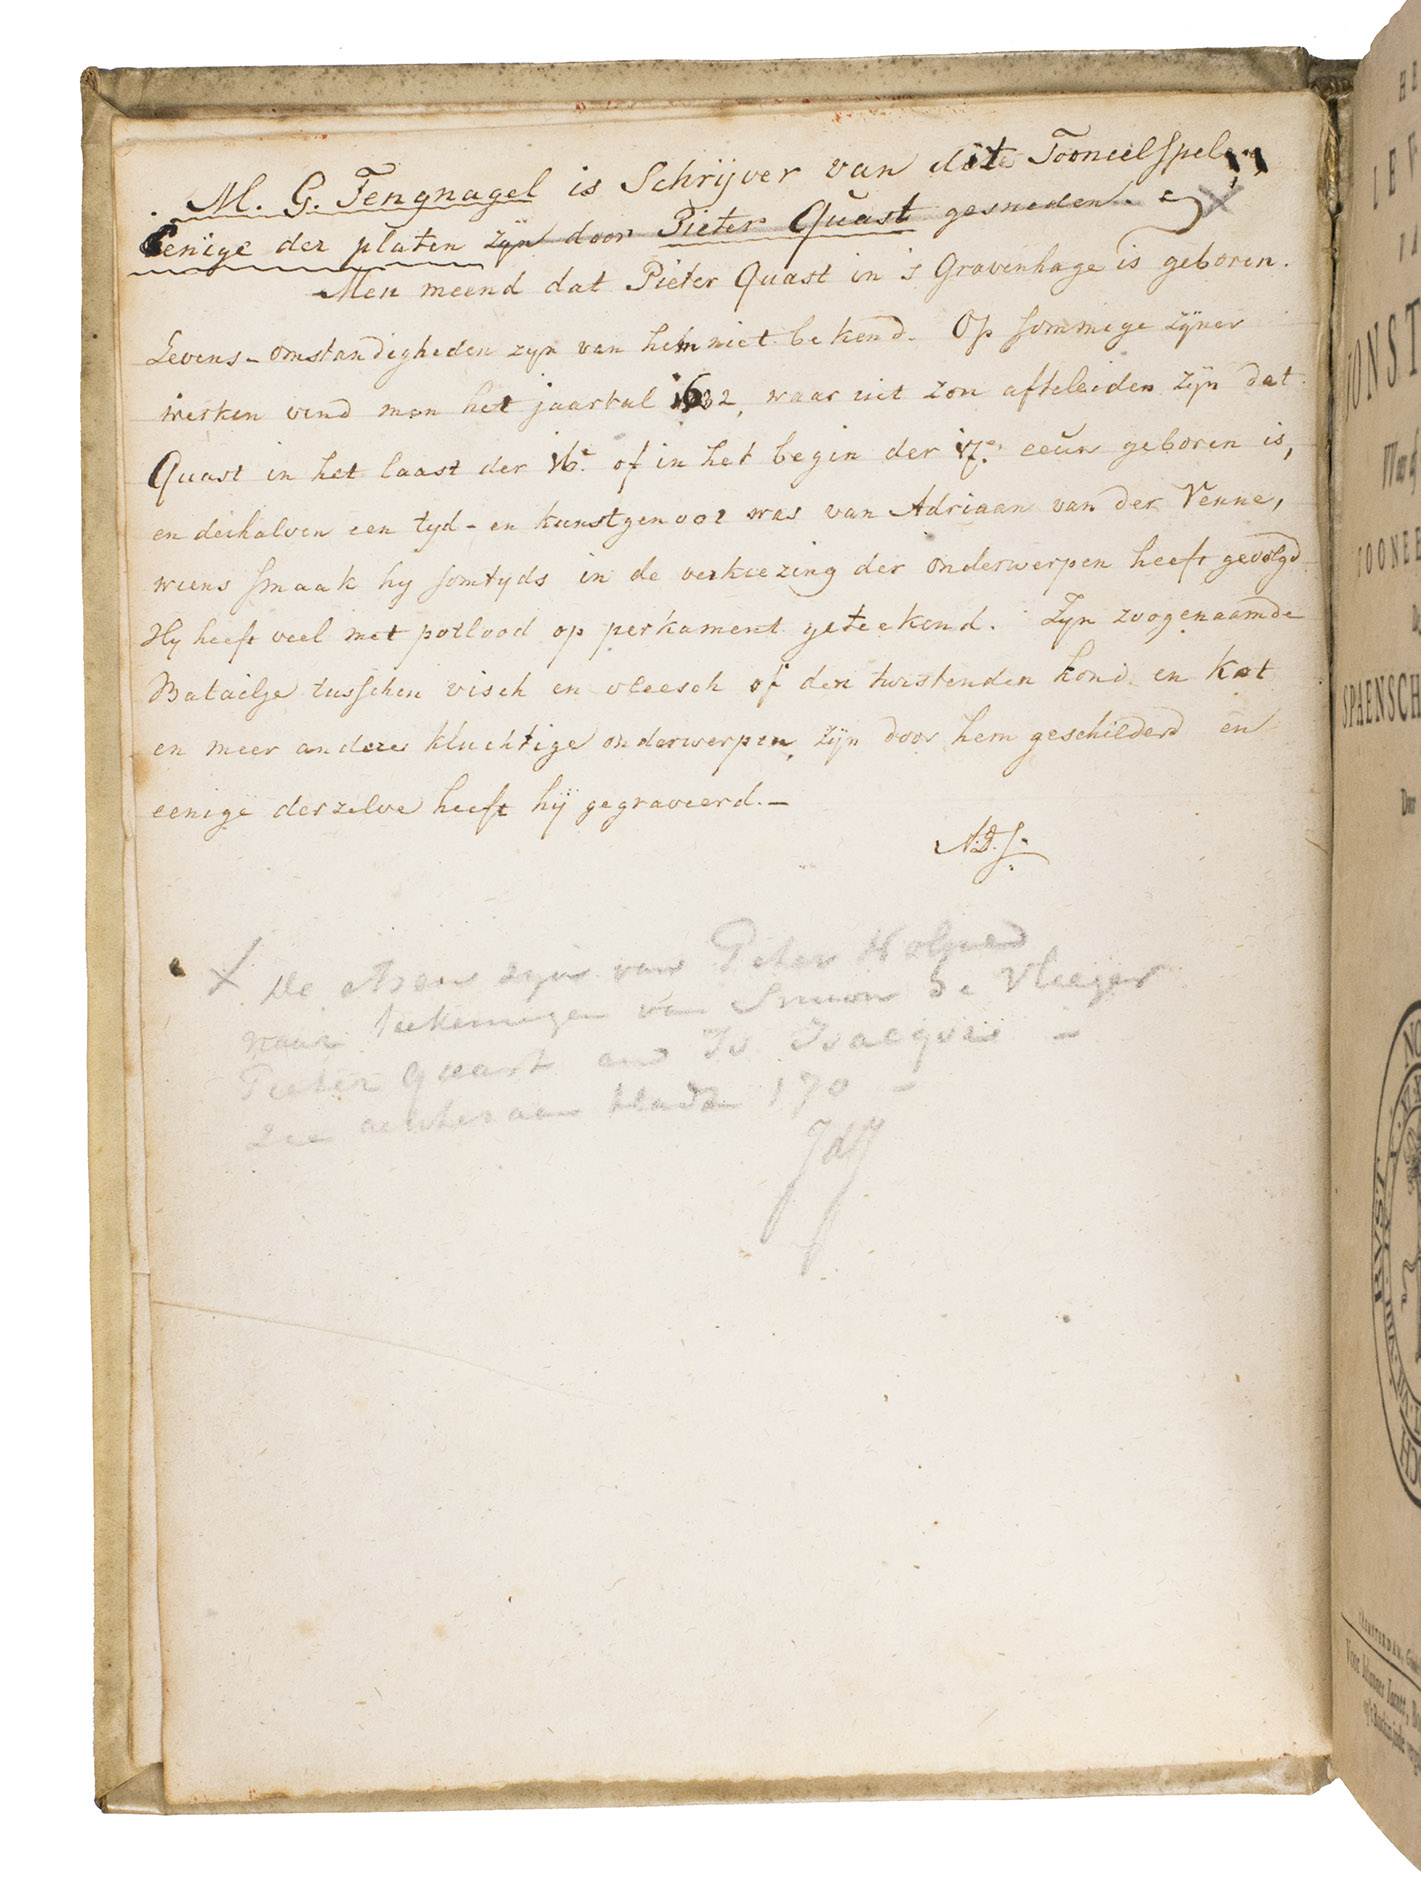 M. G. Tengnagel is Schrijver van dit Tooneelspel,
Eenige der platen zijn door Pieter Quast gesneden.
Men meend dat Pieter Quast in 's Gravenhage is geboren.
Levens-omstandigheden zyn van hem niet bekend. Op sommige zijner
werken vind men het jaartal 1632, waar uit zou afteleiden zijn dat
Quast in het laast der 16e of in het begin der 17e eeuw geboren is,
en deshalven een tyd- en kunstgenoot was van Adriaan van der Venne,
wiens smaak hy somtyds in de verkiezing der onderwerpen heeft gevolgd
Hy heeft veel met potlood op perkament geteekend. Zyn zoogenaamde
Batailje tusschen visch en vleesch of den twistenden hond en kat
en meer andere kluchtige onderwerpen, zijn door hem geschilderd en
eenige derzelve heeft hij gegraveerd.-
X de etsen zijn van Pieter Nolpe en
naar teekeningen van Simon de Vlieger
Pieter Quast en Is. Isacqsz -
zie achteraan bladz 170 -
JdJ
HE
LEV
IONST
TOONEE
SPAENSCH
Door